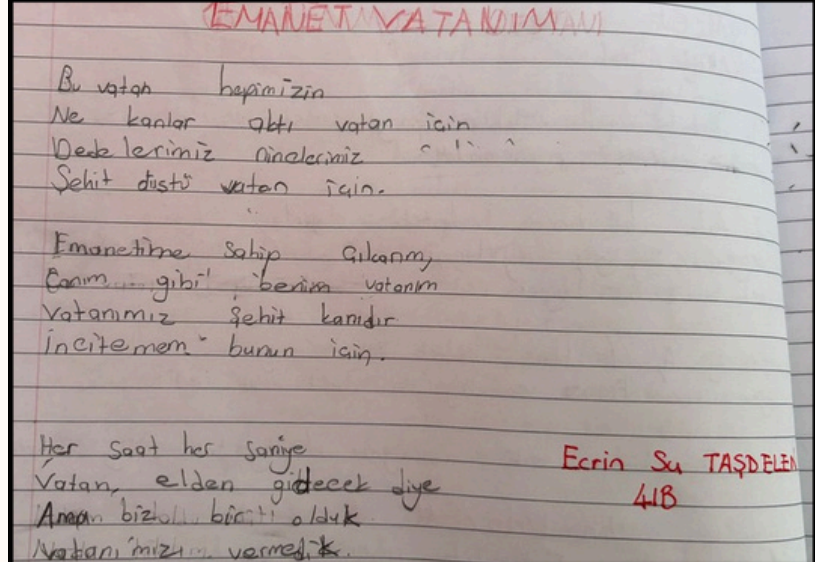 EMANET VATANIM
Bu vatan hepimizin
Ne kanlar aktı vatan için
Dedelerimiz ninelerimiz
Şehit düştü vatan için.
Emanetime Sahip Çıkarım,
Canım gibi benim vatanım
Vatanımız Şehit kanıdır
İncitemem bunun için.
Her Saat her Saniye
Vatan, elden gidecek diye
Aman olduk
Vatanımızı vermedik.
Ecrin Su TAŞDELEN
4/B